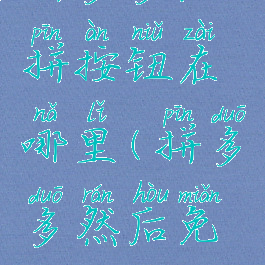 pīn àn niǔ zài
拼按钮在
nǎ lǐ pīn duō
哪里(拼多
duō rán hòu miǎn
多然后免